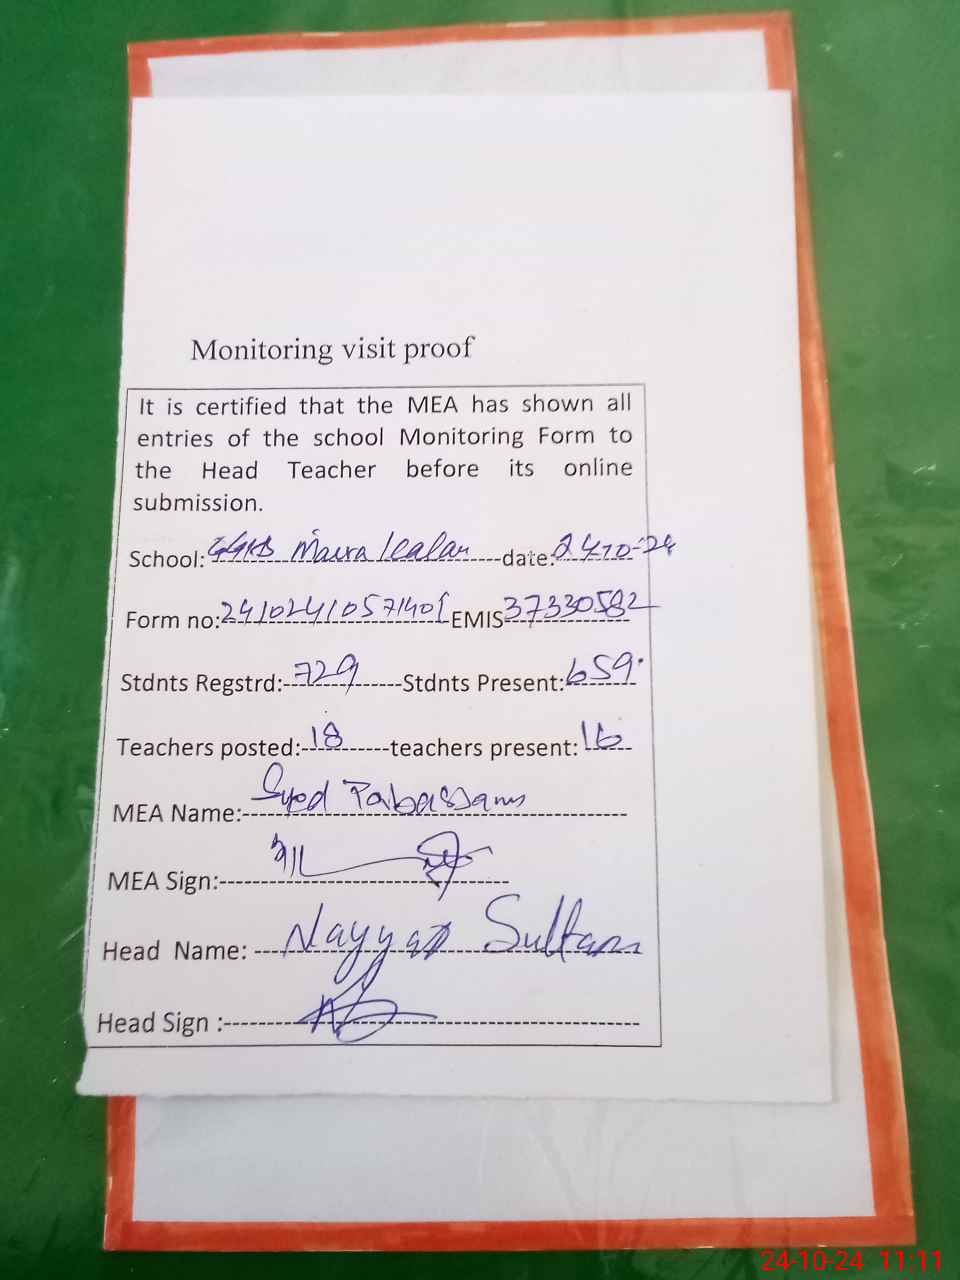 Monitoring visit proof
It is certified that the MEA has shown all
entries of the school Monitoring Form to
the Head Teacher before its online
submission.
School: Maira Kalan date: 24-10-24
Form no: EMIS 37330582
Stdnts Regstrd: 729 Stdnts Present: 659
Teachers posted: 18 teachers present: 16
MEA Name: Syed
MEA Sign:
Head Name: Nayyar Sultana
Head Sign :
24-10-24 11:11